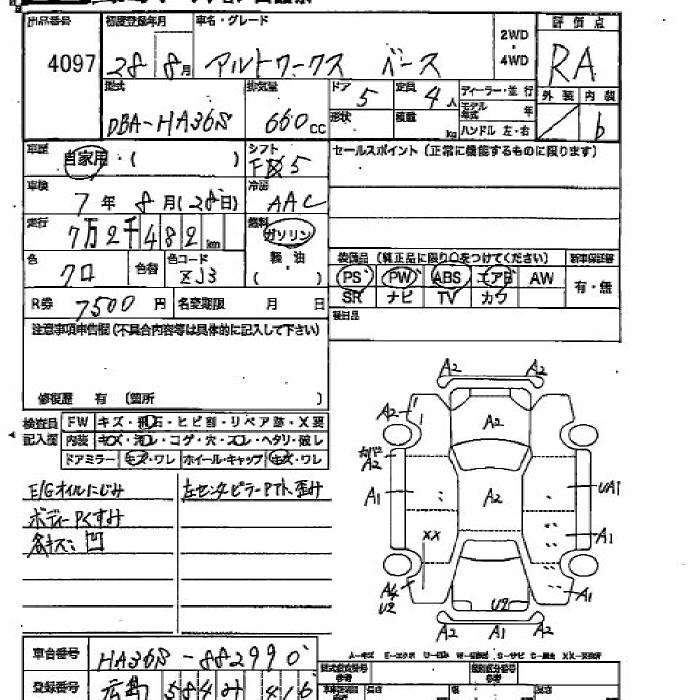 出品番号 初度登録年月 車名・グレード 2WD・4WD 評価点
4097 28年 8月 アルトワークス ベース RA
型式 排気量 ドア 定員 ディーラー・並行 外装 内装
DBA-HA36S 660cc 5 4人 モデル年式 年 b
形状 積載 kg ハンドル 左・右
車歴 自家用・( ) シフト F5 セールスポイント(正常に機能するものに限ります)
車検 7年 8月(28日) 冷房 AAC
走行 7万2千482km 燃料 ガソリン
軽油
( )
色 クロ 色替 色コード ZJ3
装備品(純正品に限り○をつけてください) 新車保証書
PS PW ABS エアB AW 有・無
SR ナビ TV カワ
R券 7500円 名変期限 月 日
後日品
注意事項申告欄(不具合内容等は具体的に記入して下さい)
修復歴 有(箇所 )
検査員記入欄 FW キズ・飛石・ヒビ割・リペア跡・X要
内装 キズ・汚レ・コゲ・穴・スレ・ヘタリ・破レ
ドアミラー キズ・ワレ ホイール・キャップ キズ・ワレ
E/Gオイルにじみ 左センタピラーPTト、歪み
ボディーPくすみ
各キズ、凹
A2 A2
A2 A2
A2
A1 A2 UA1
XX A1
A4 U2 U2 A1
A2 A1 A2
車台番号 HA36S-882990
登録番号 広島 584 416